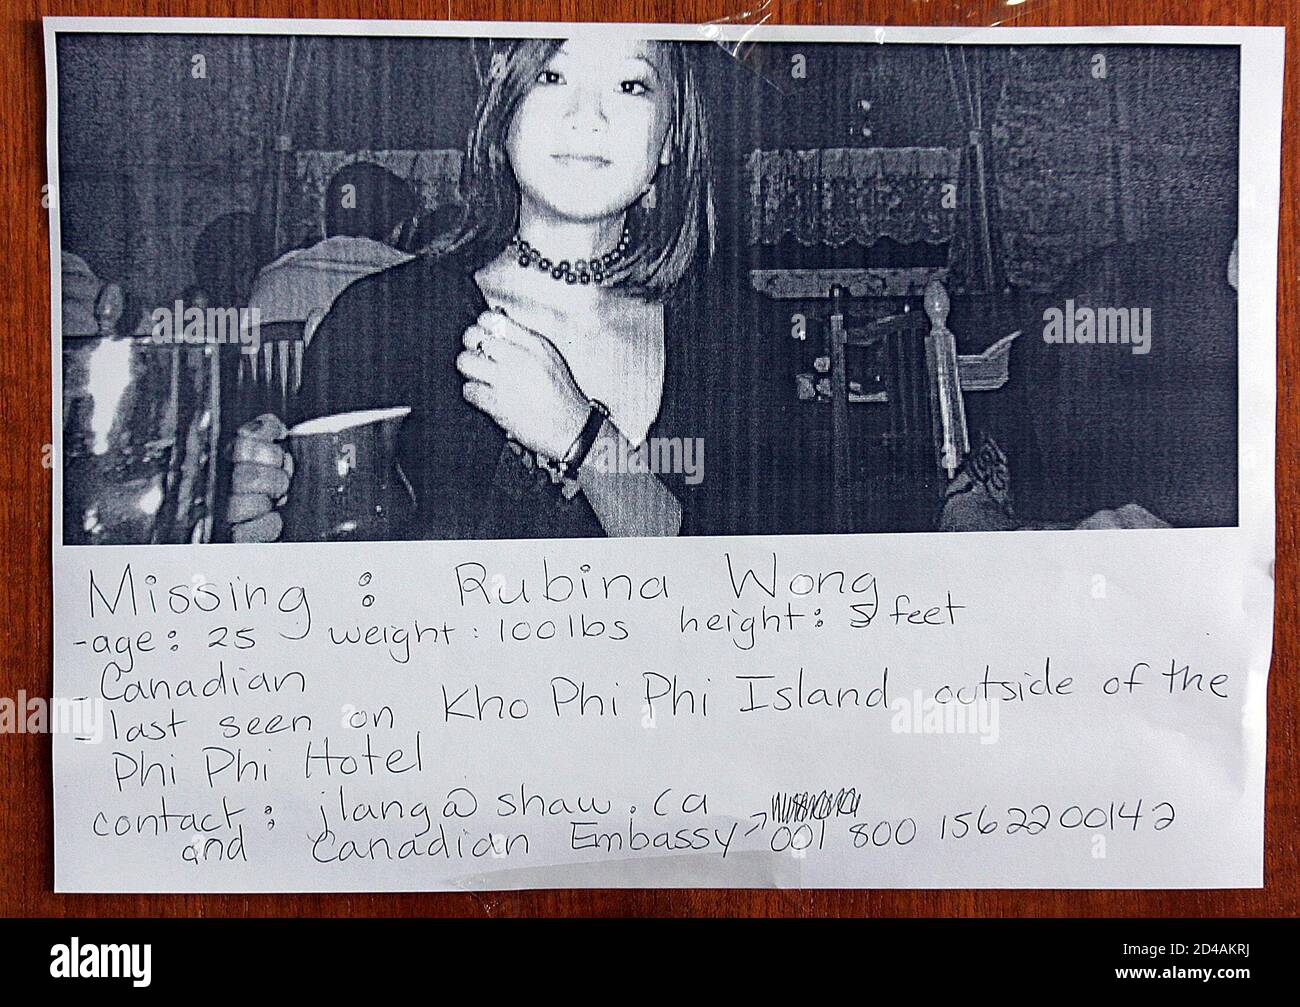 Missing : Rubina Wong
-age: 25 weight: 100lbs height: 5 feet
- Canadian
- last seen on Kho Phi Phi Island outside of the
Phi Phi Hotel
contact: jlang@shaw.ca
and Canadian Embassy → 001 800 1562200142
alamy
Image ID: 2D4AKRJ
www.alamy.com